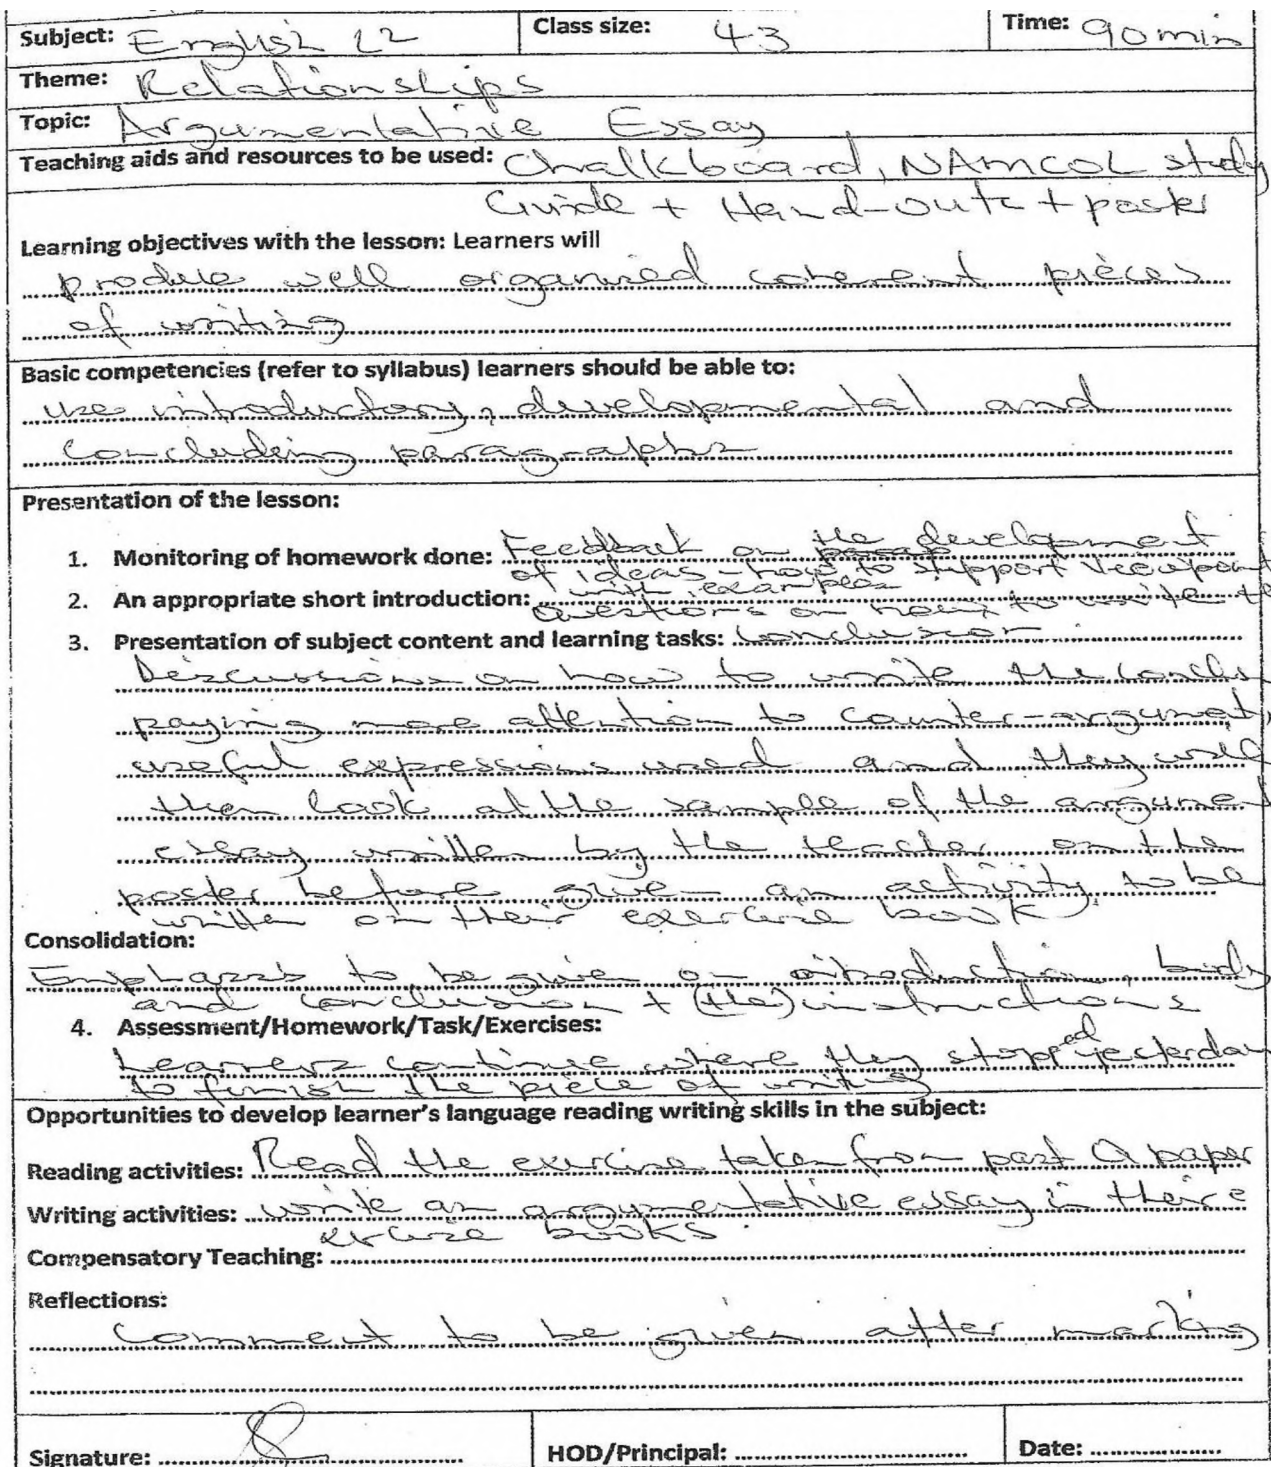 Subject: English L2 Class size: 43 Time: 90 min
Theme: Relationships
Topic: Argumentative Essay
Teaching aids and resources to be used: Chalkboard, NAMCOL study
Guide + Hand-outs + poster
Learning objectives with the lesson: Learners will
produce well organised coherent pieces
of writing
Basic competencies (refer to syllabus) learners should be able to:
use introductory, developmental and
concluding paragraphs
Presentation of the lesson:
1. Monitoring of homework done: Feedback on the development
of ideas - how to support viewpoint
2. An appropriate short introduction: with examples
questions on how to write the
3. Presentation of subject content and learning tasks: conclusion.
Discussions on how to write the conclus
paying more attention to counter-argumat,
useful expressions used and they will
then look at the sample of the argument
essay written by the teacher on the
poster before give an activity to be
written on their exercise book.
Consolidation:
Emphasis to be given on introduction, body
and conclusion + (the) instructions
4. Assessment/Homework/Task/Exercises:
Learners continue where they stopped yesterday
to finish the piece of writing
Opportunities to develop learner's language reading writing skills in the subject:
Reading activities: Read the exercise taken from past Q paper
Writing activities: write an argumentative essay in their e
xercise books.
Compensatory Teaching:
Reflections:
Comment to be given after marking
Signature: HOD/Principal: Date: